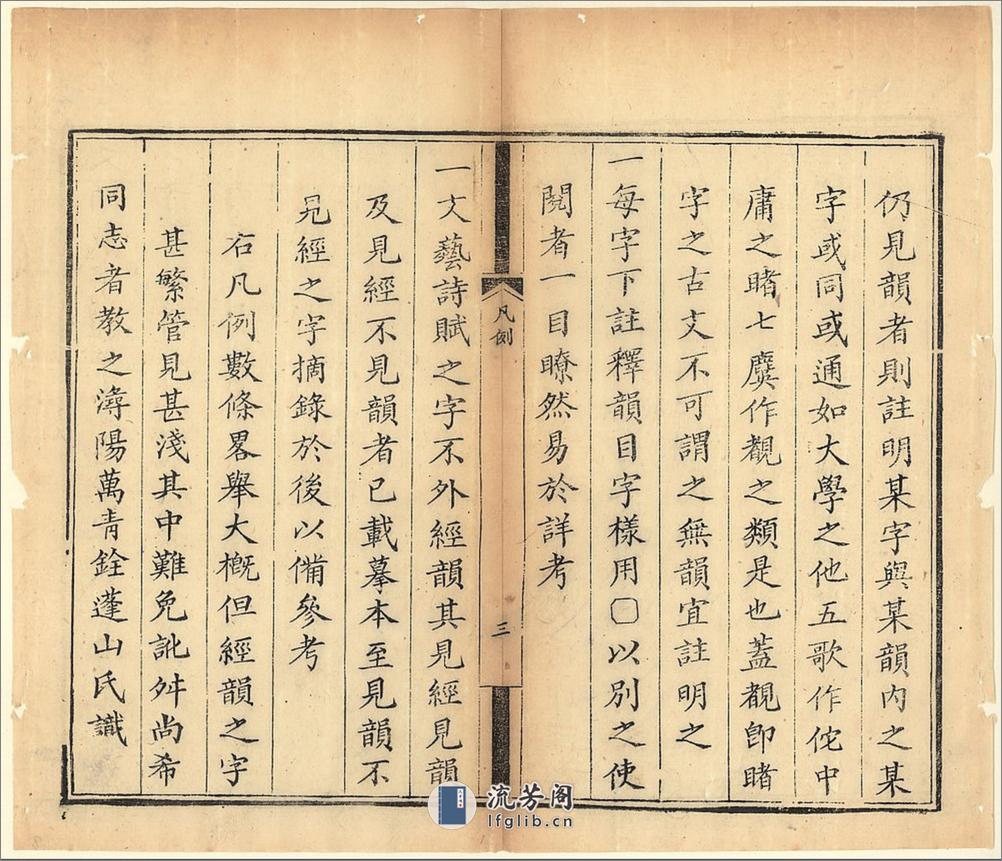 仍見韻者則註明某字與某韻内之某
字或同或通如大學之他五歌作佗中
庸之睹七麌作覩之類是也蓋覩即睹
字之古文不可謂之無韻宜註明之
一每字下註釋韻目字樣用〇以別之使
閱者一目瞭然易於詳考
凡例
三
一文藝詩賦之字不外經韻其見經見韻
及見經不見韻者已載摹本至見韻不
見經之字摘錄於後以備參考
右凡例數條畧舉大槪但經韻之字
甚繁管見甚淺其中難免訛舛尚希
同志者教之潯陽萬青銓蓬山氏識
流芳阁
lfglib.cn